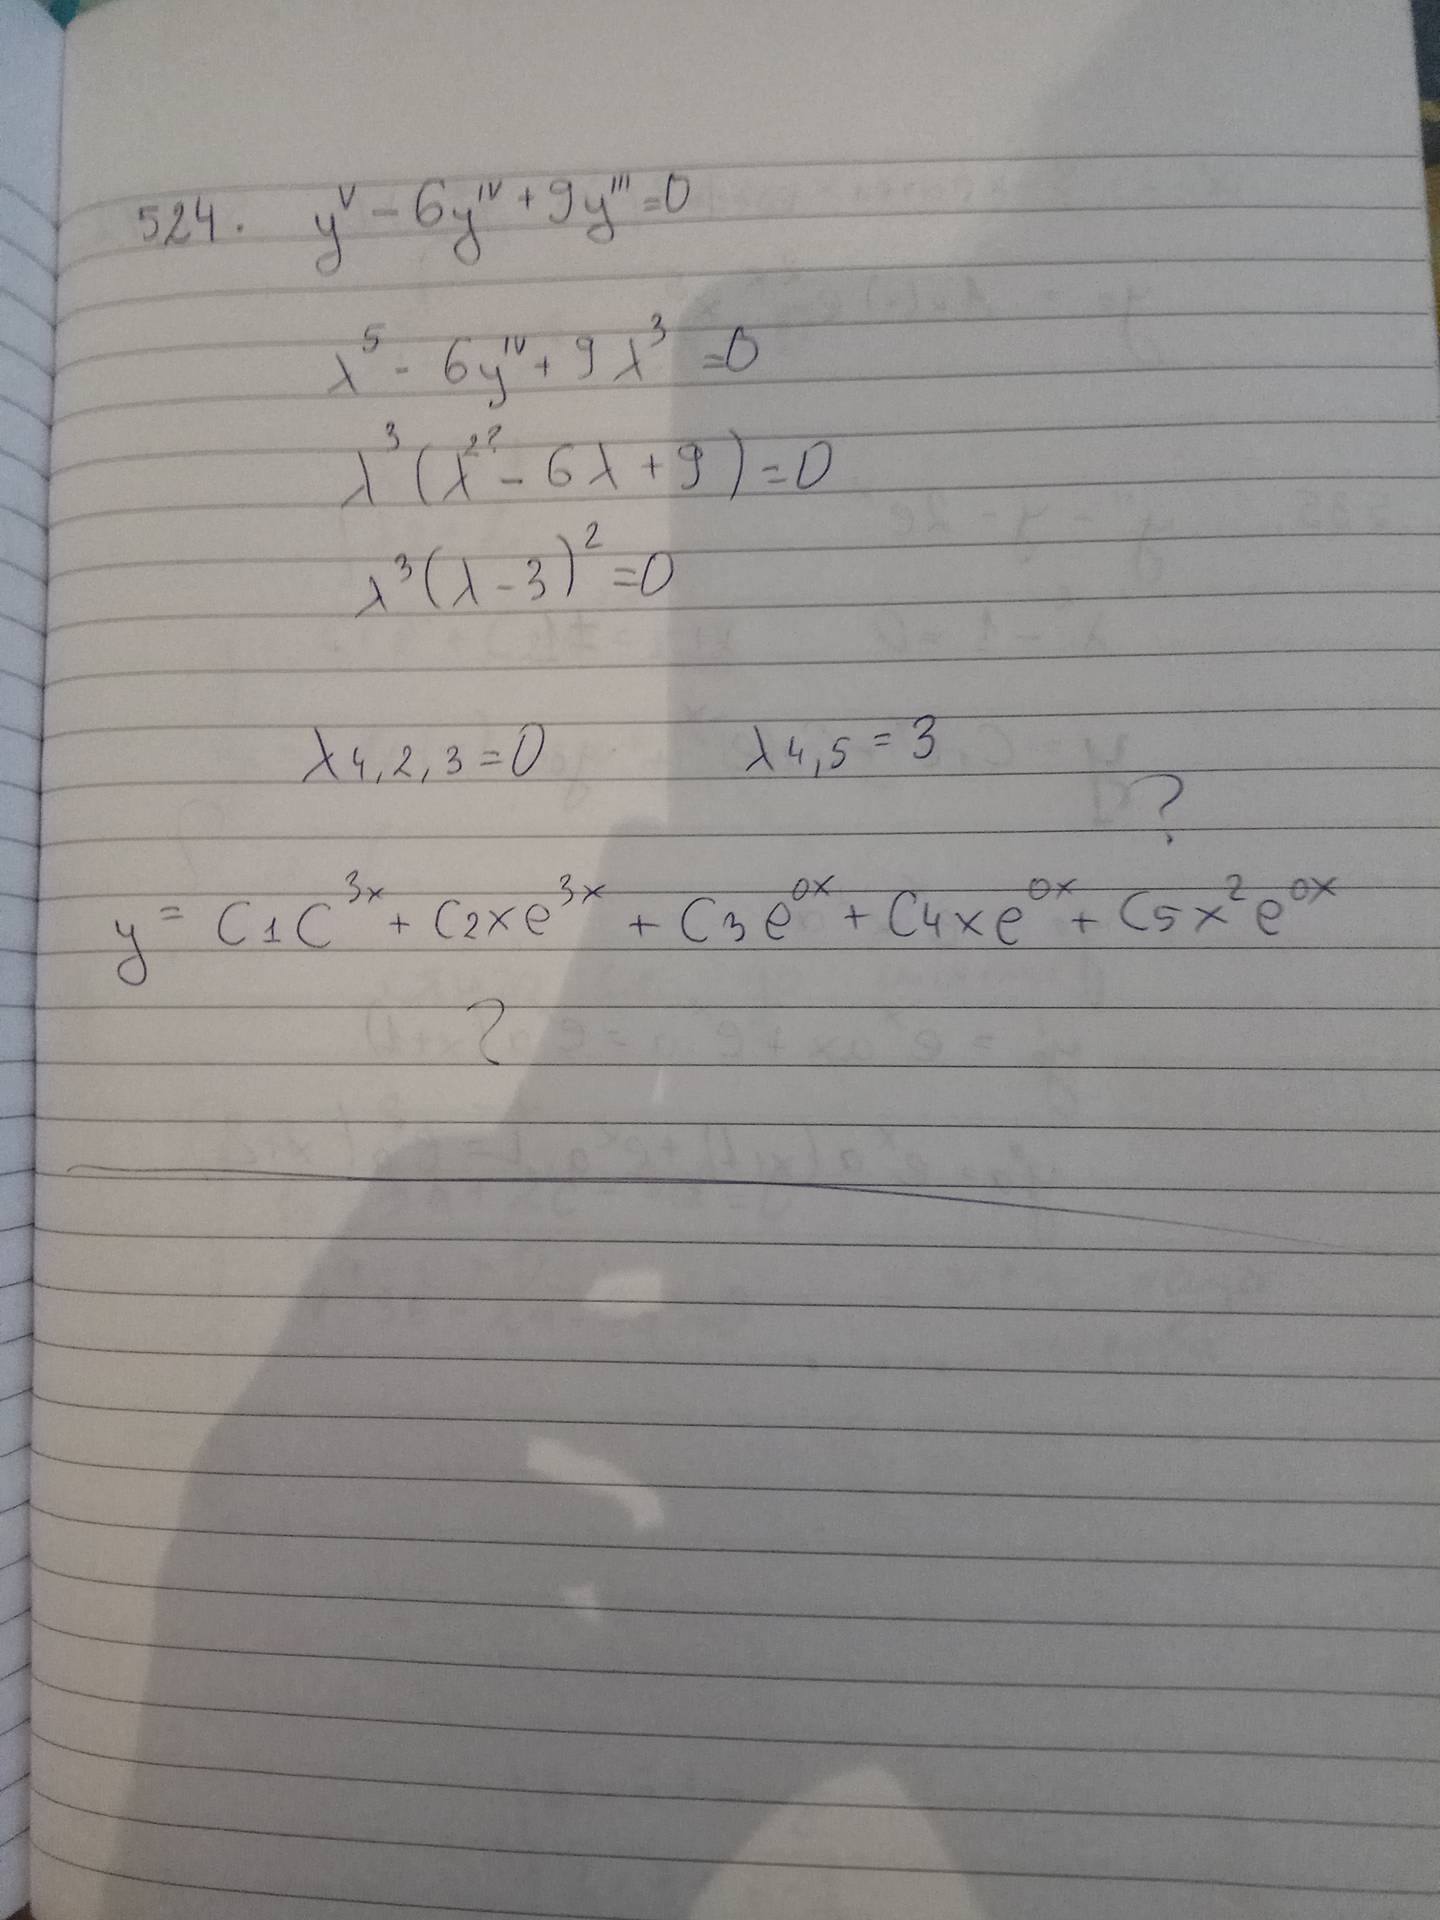 524. y^V - 6y^IV + 9y^III = 0
λ^5 - 6y^IV + 9λ^3 = 0
λ^3 (λ^2? - 6λ + 9) = 0
λ^3 (λ - 3)^2 = 0
λ4,2,3 = 0 λ4,5 = 3
?
y = C1C^3x + C2xe^3x + C3e^0x + C4xe^0x + C5x^2e^0x
?